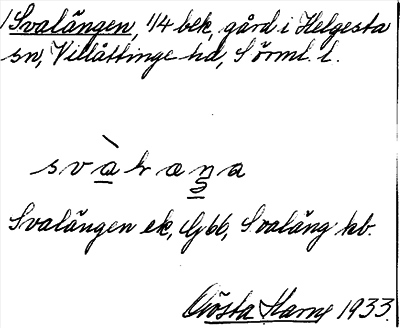 Svalängen, 1/4 bek, gård i Helgesta
sn, Villåttinge hd, Sörml. l.
Svalängen ek, Gbb, Svaläng kb.
Gösta 1933.